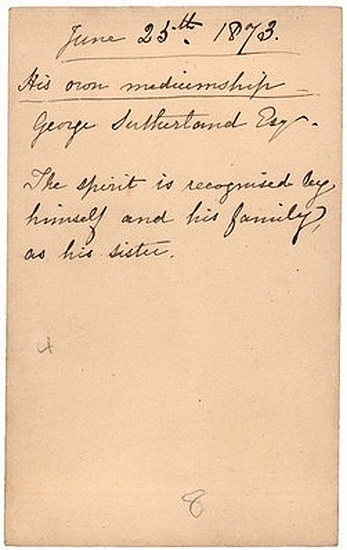 June 25th 1873.
His own mediumship
George Sutherland Esqr.
The spirit is recognised by
himself and his family,
as his sister.